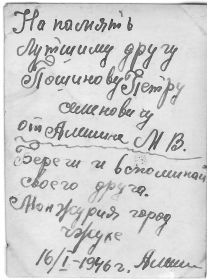 На память
лутшиму другу
Пошинову Петру
семеновичу
от Алмина М В.
Береги и вспоминай
своего друга.
Манжурия город
16/I-1946 г.